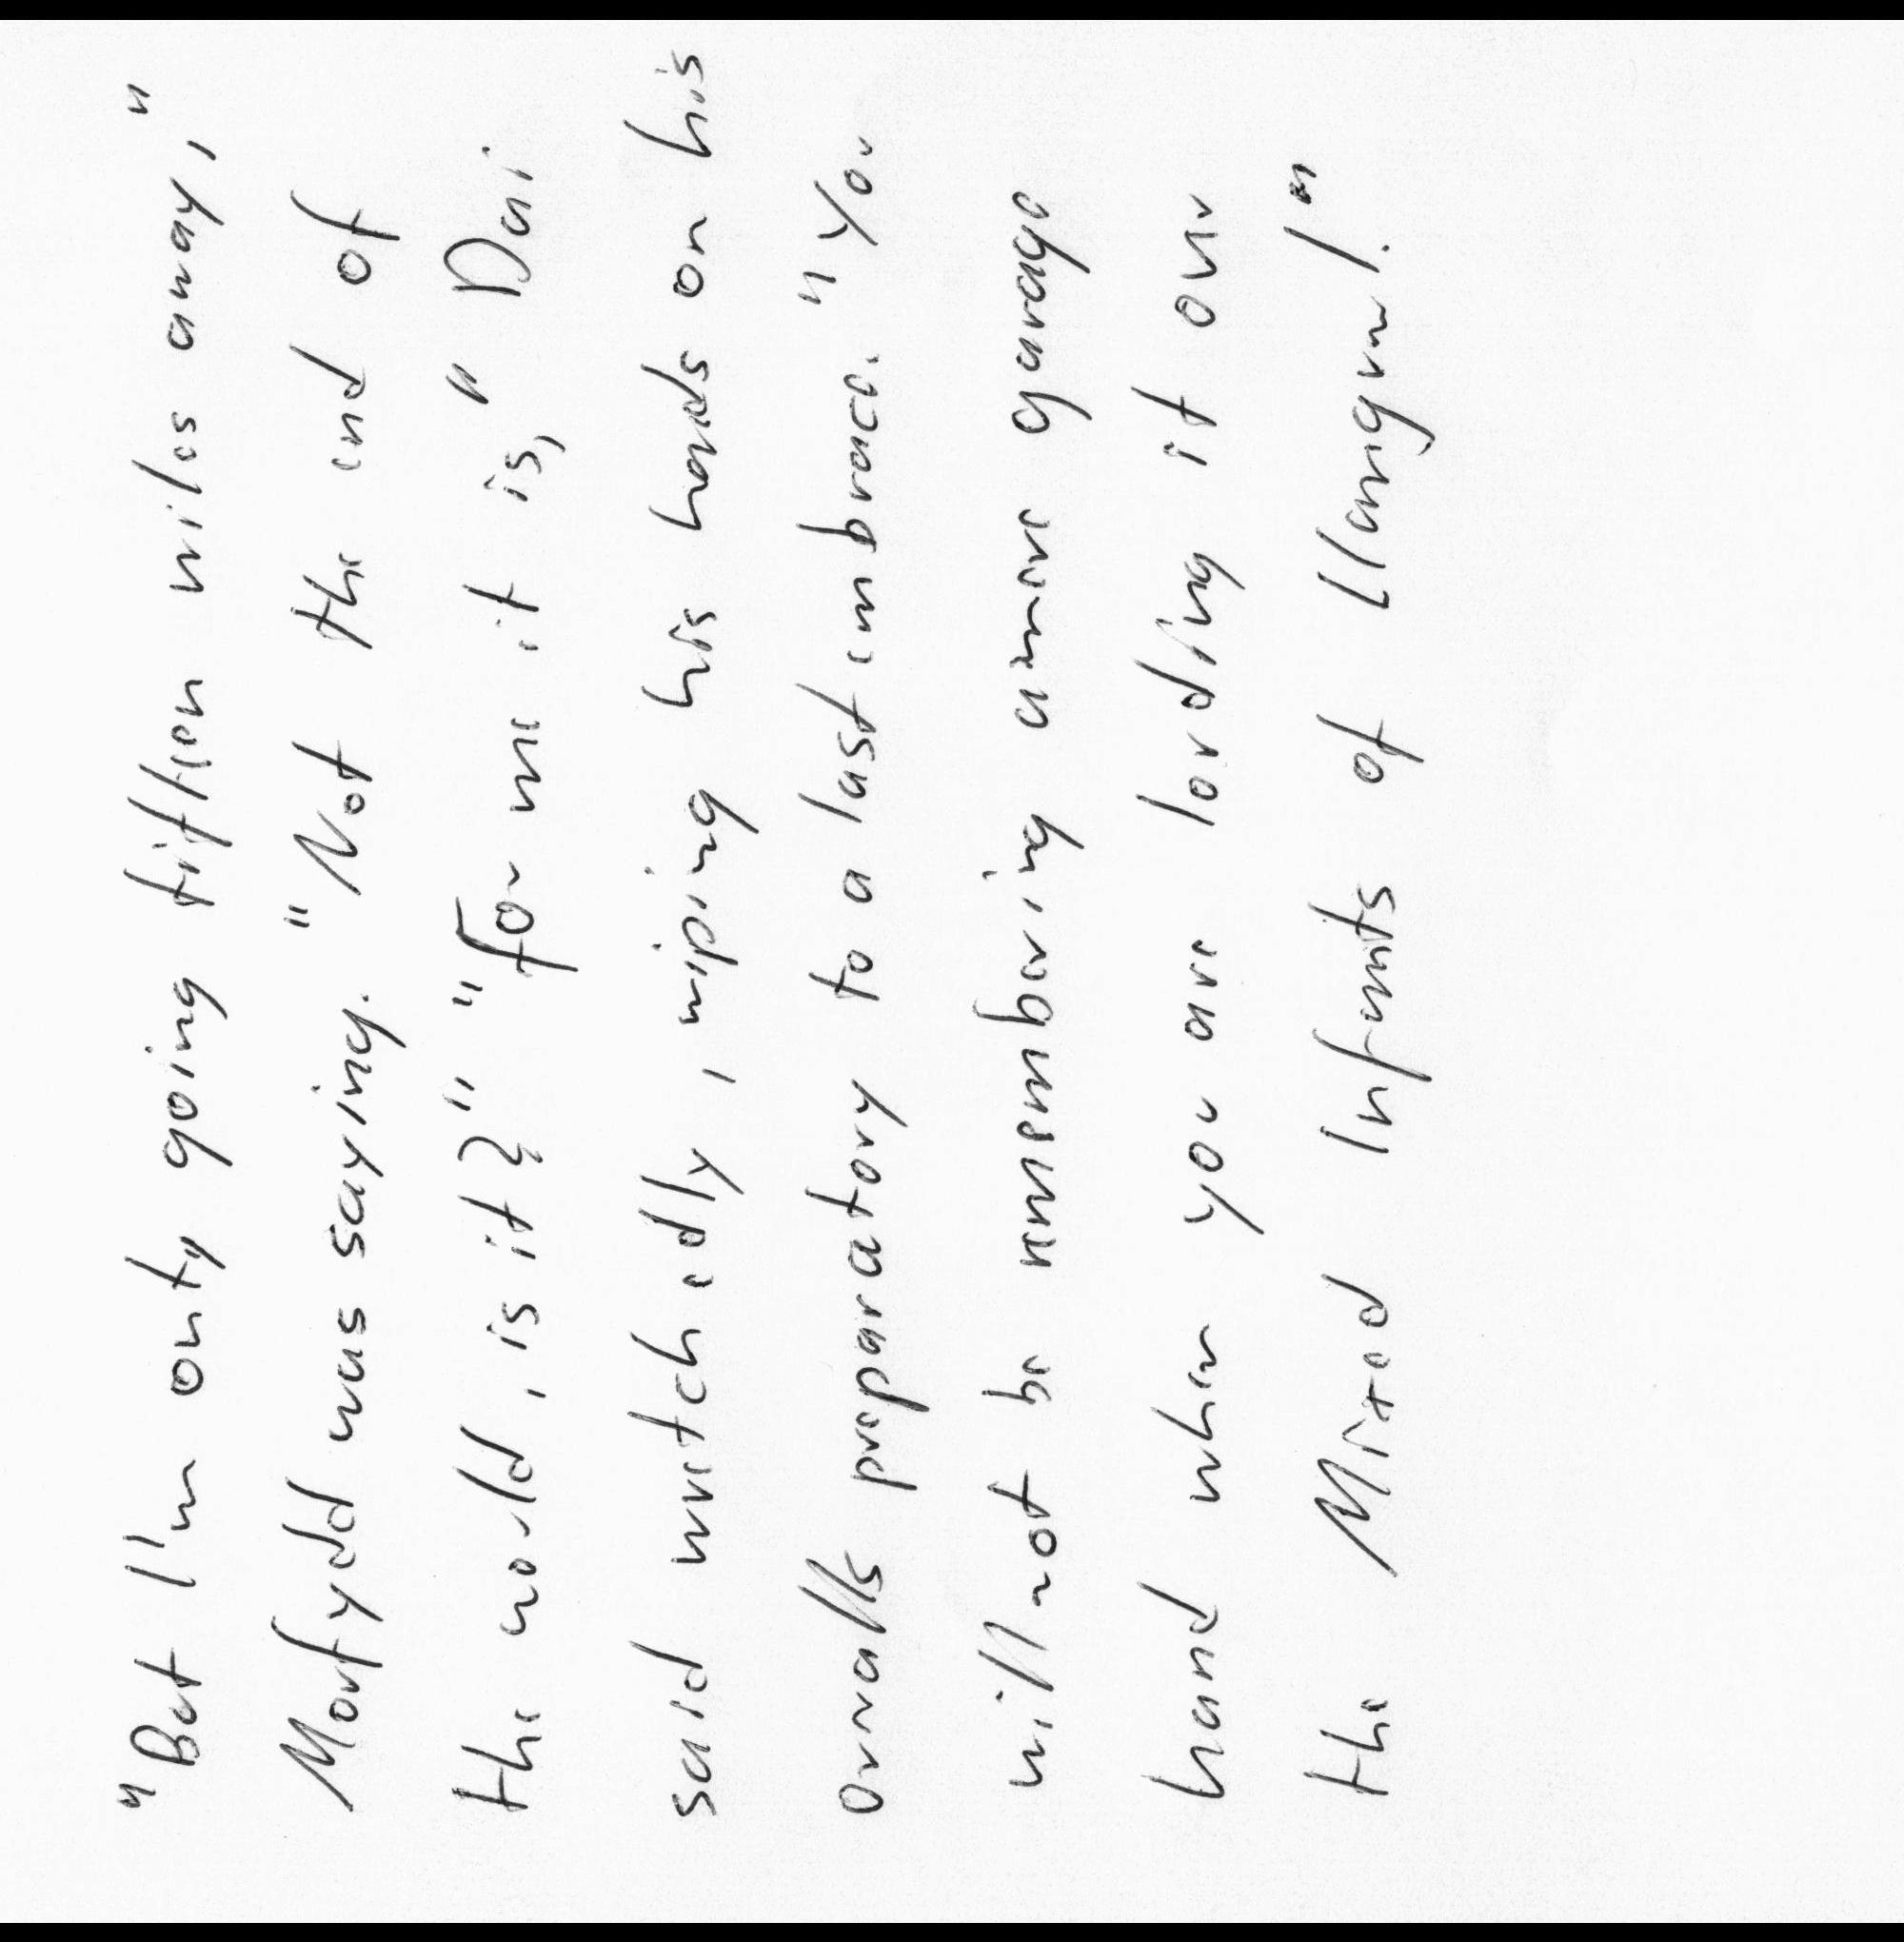 "But I'm only going fifteen miles away,"
Morfydd was saying. "Not the end of
the world, is it?" "For me it is," Dai
said wretchedly, wiping his hands on his
overalls preparatory to a last embrace. "You
will not be remembering a mere garage
hand when you are lording it over
the Mixed Infants of Llangwm!"